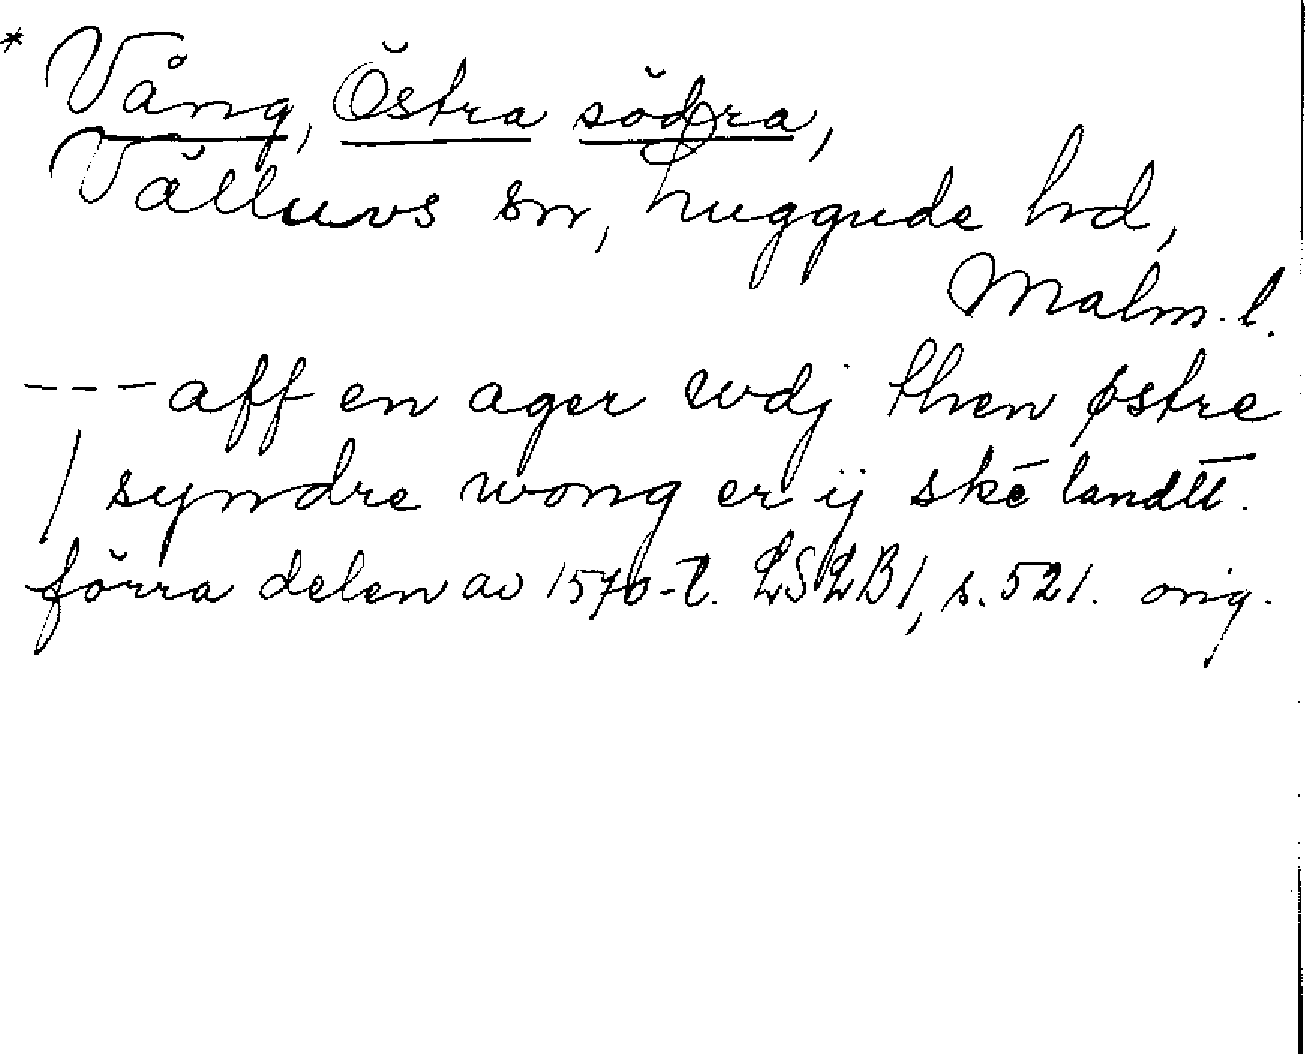 * Vång, Östra södra,
Välluvs sn, Luggude hd,
Malm. l.
--- aff en ager wdj then østre
/ syndre wong er ij skē landtt̄.
förra delen av 1570-t. LSLB 1, s. 521. orig.